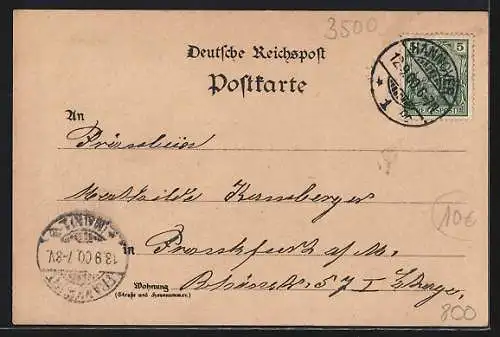 3500
Deutsche Reichspost
Postkarte
HANNOVER
12.9.00
* 1
5
REICHSPOST
An
Fräulein
Mathilde
10€
in Frankfurt a/M.
Wohnung
(Straße und Hausnummer)
57 I Etage.
FRANKFURT
(MAIN)
13.9.00.7-8V.
800